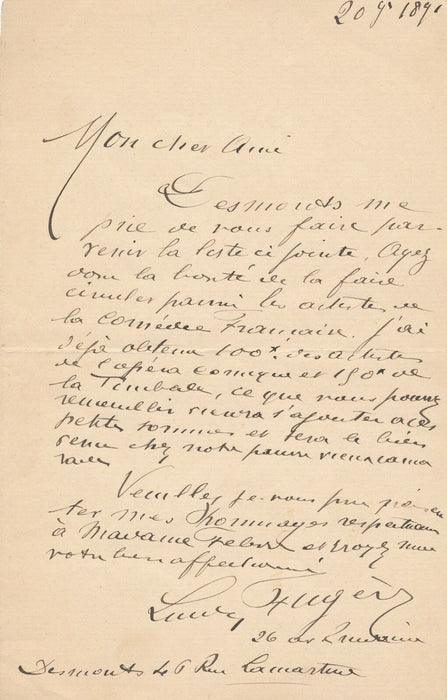 20 9r 1891
Mon cher Ami
Desmonts me
prie de vous faire par-
venir la liste ci jointe, Ayez
donc la bonté de la faire
circuler parmi les artistes de
la Comédie Française. J'ai
déjà obtenu 100f des artistes
de l'opéra comique et 150f de
la Timbale, ce que vous pourrez
recueillir viendra s'ajouter à ces
petites sommes et sera le bien
venu chez notre pauvre vieux cama
rade
Veuillez je vous prie présen
ter mes hommages respectueux
à Madame Febvre et croyez moi
votre bien affectionné
Lucien Fugère
26 av
Desmonts 46 Rue Lamartine